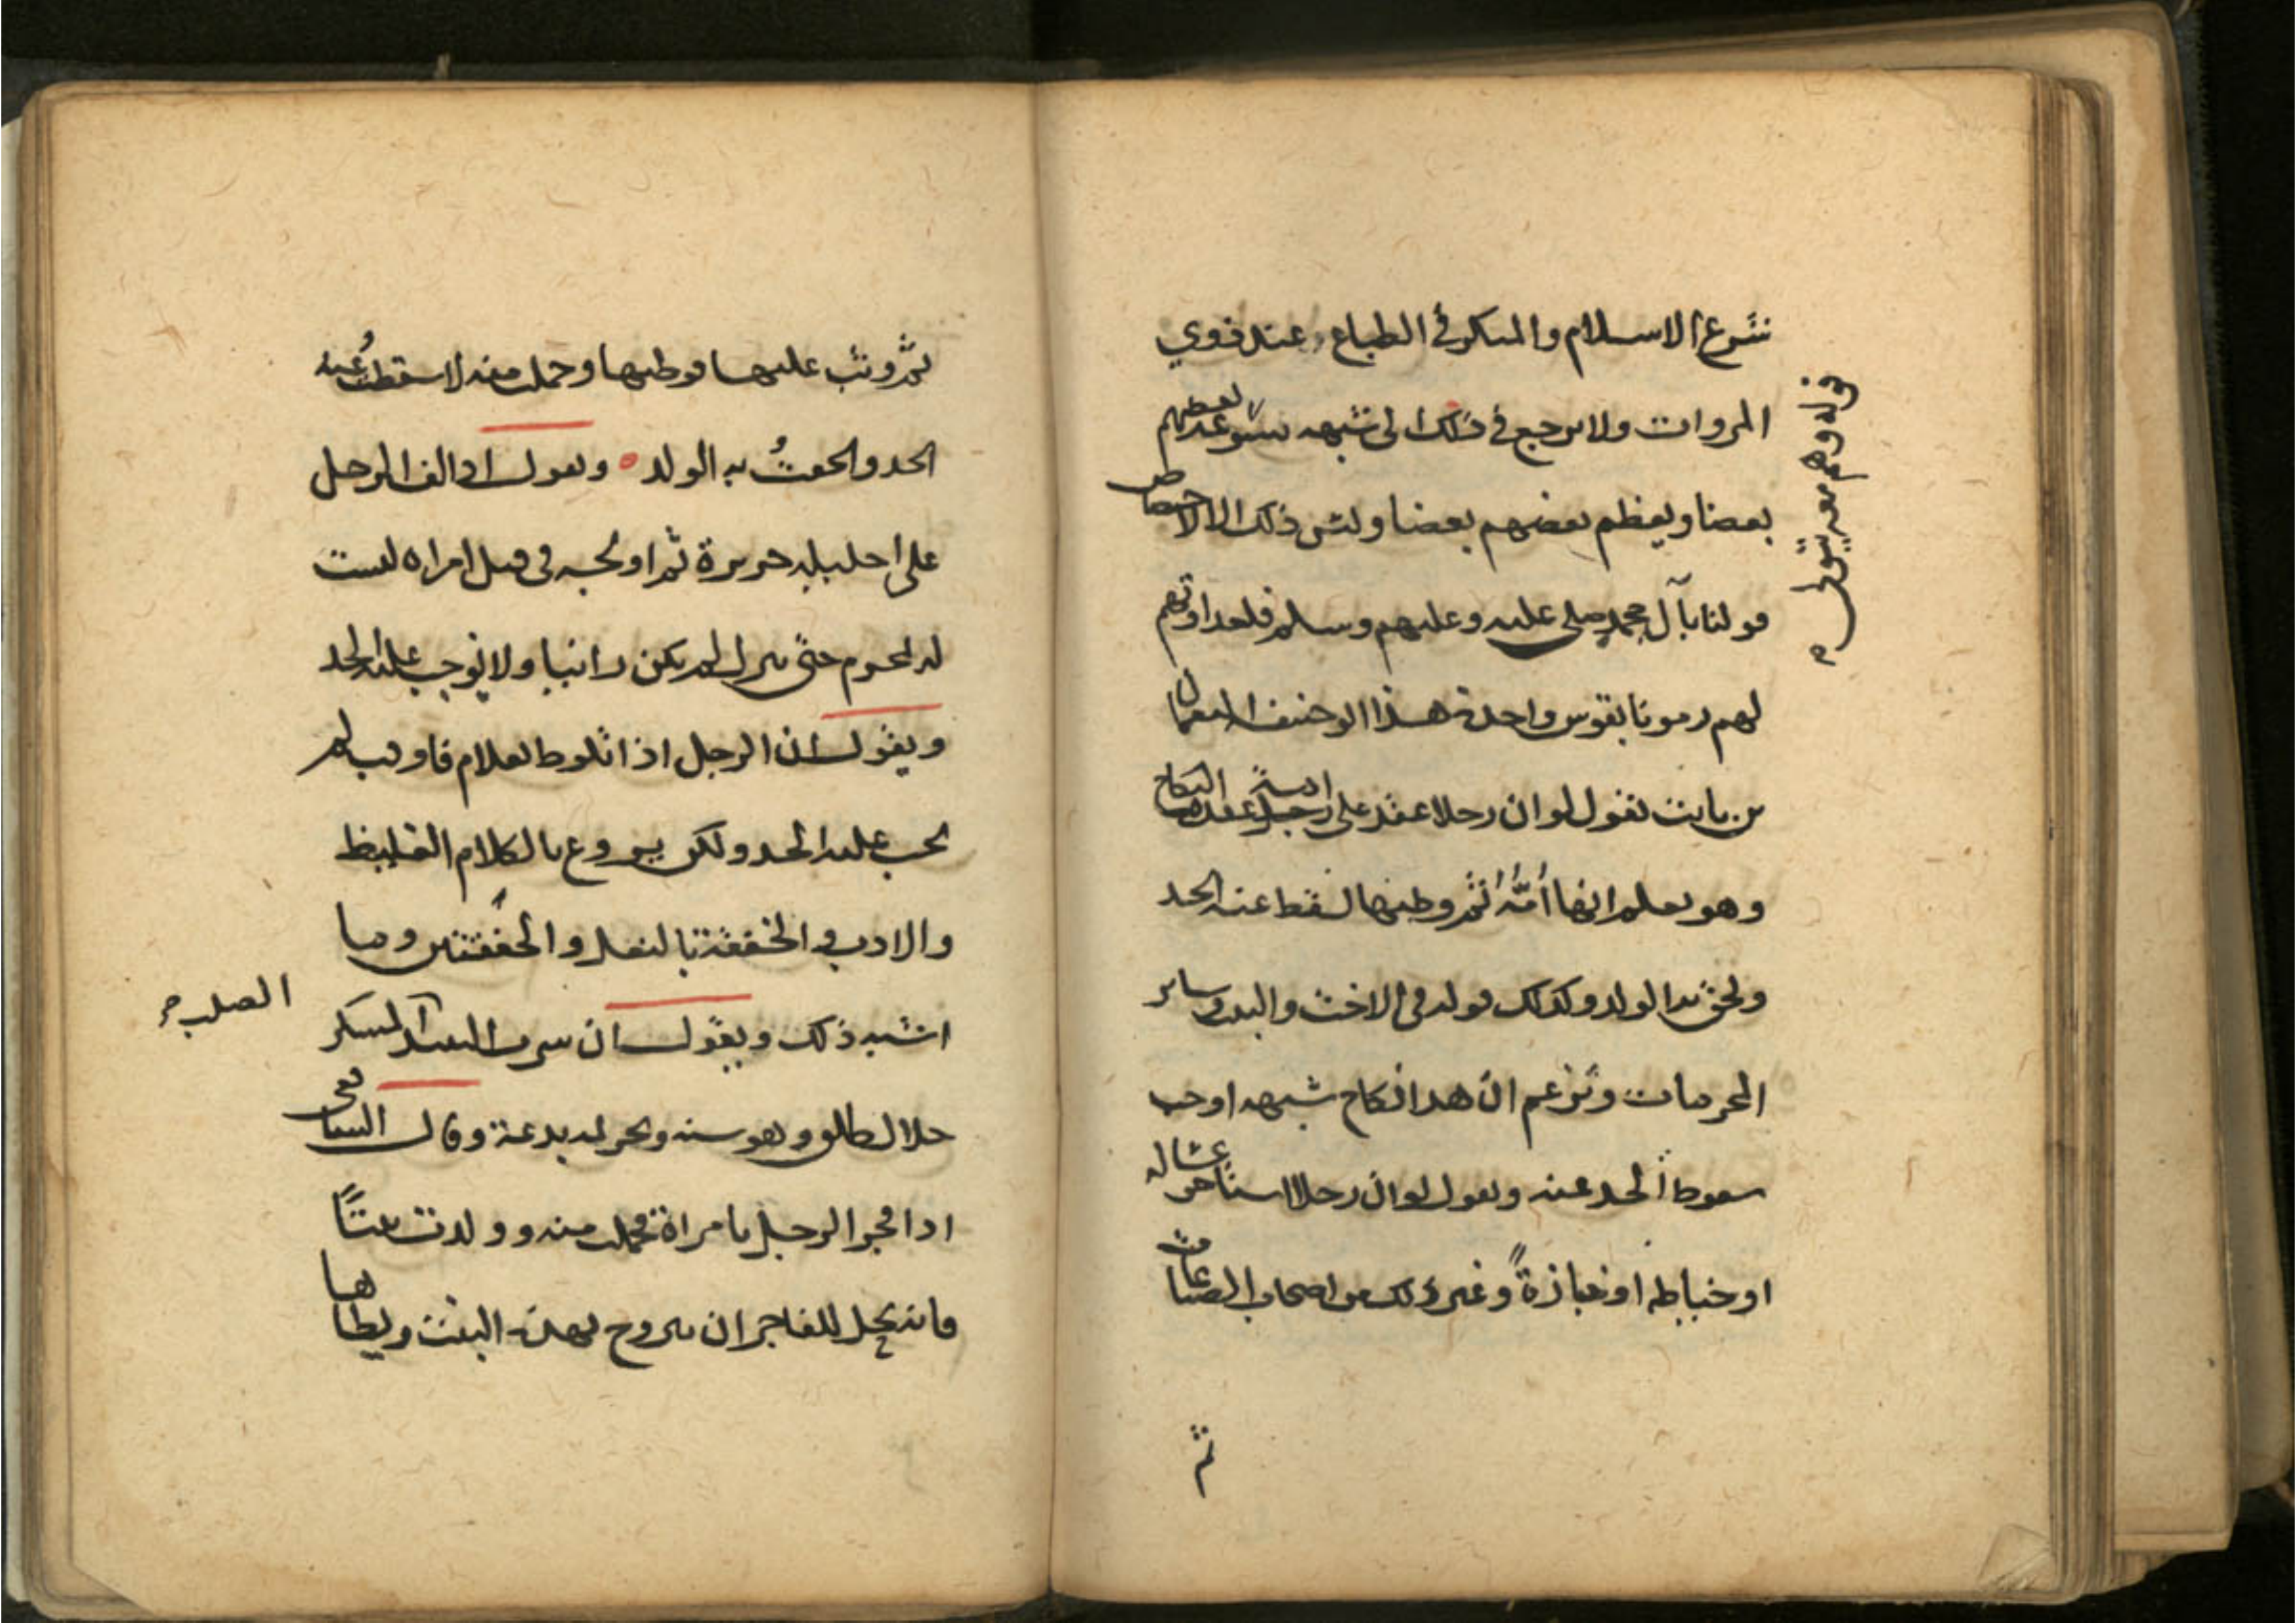 شرع الاسلام والمنكر في الطباع وعند ذوي
المروات ولا يرجع في ذلك الى شبهه تسوغ بعضهم
بعضا ويعظم بعضهم بعضا وليس ذلك الا لاختصاص
قولنا بآل محمد صلى عليه وعليهم وسلم فلعداوتهم
لهم رمونا بقوس واحدة هذا ابو حنيفة النعمان
بن ثابت يقول لو ان رجلا عقد على امه عقدة النكاح
وهو يعلم انها أمّه ثم وطئها لسقط عنه الحد
ولحق به الولد وكذلك قوله في الاخت والبنت وسائر
المحرمات وتزعم ان هذا نكاح شبهه اوجب
سقوط الحد عنه ويقول لو ان رجلا استاجر غساله
او خياطه او خبازةً وغير ذلك من اصحاب الصناعات
ثم
قوله وهم معه يتولى
ثم وثب عليها فوطيها وحملت منه لاسقطتُ عنه
الحد والحقتُ به الولد ويقول اذا لف الرجل
على احليله حريرة ثم اولجه في قبل امراه ليست
له بمحرم حتى ينزل لم يكن زانيا ولا يوجب عليه الحد
ويقول ان الرجل اذا تلوط بغلام فاوقب لم
يجب عليه الحد ولكن يردع بالكلام الغليظ
والادب والخفقة بالنعل والخفقتين وما
اشبه ذلك ويقول ان شرب النبيذ المسكر
الصلب
حلال طلق وهو سنه وتحريمه بدعة وقال الشافعي
اذا فجر الرجل بامراة فحملت منه وولدت بنتًا
فانه يحل للفاجر ان يتزوج بهذه البنت ويطاها